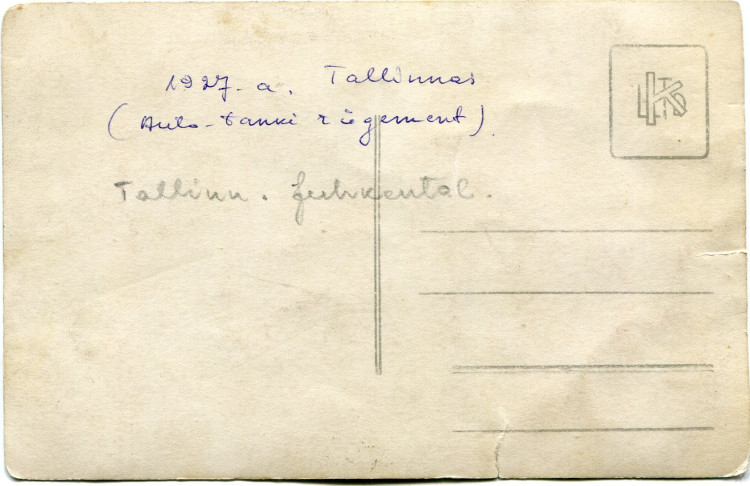 1927-a. Tallinnas
(Auto-tanki rügement).
Tallinn. Juhkental.